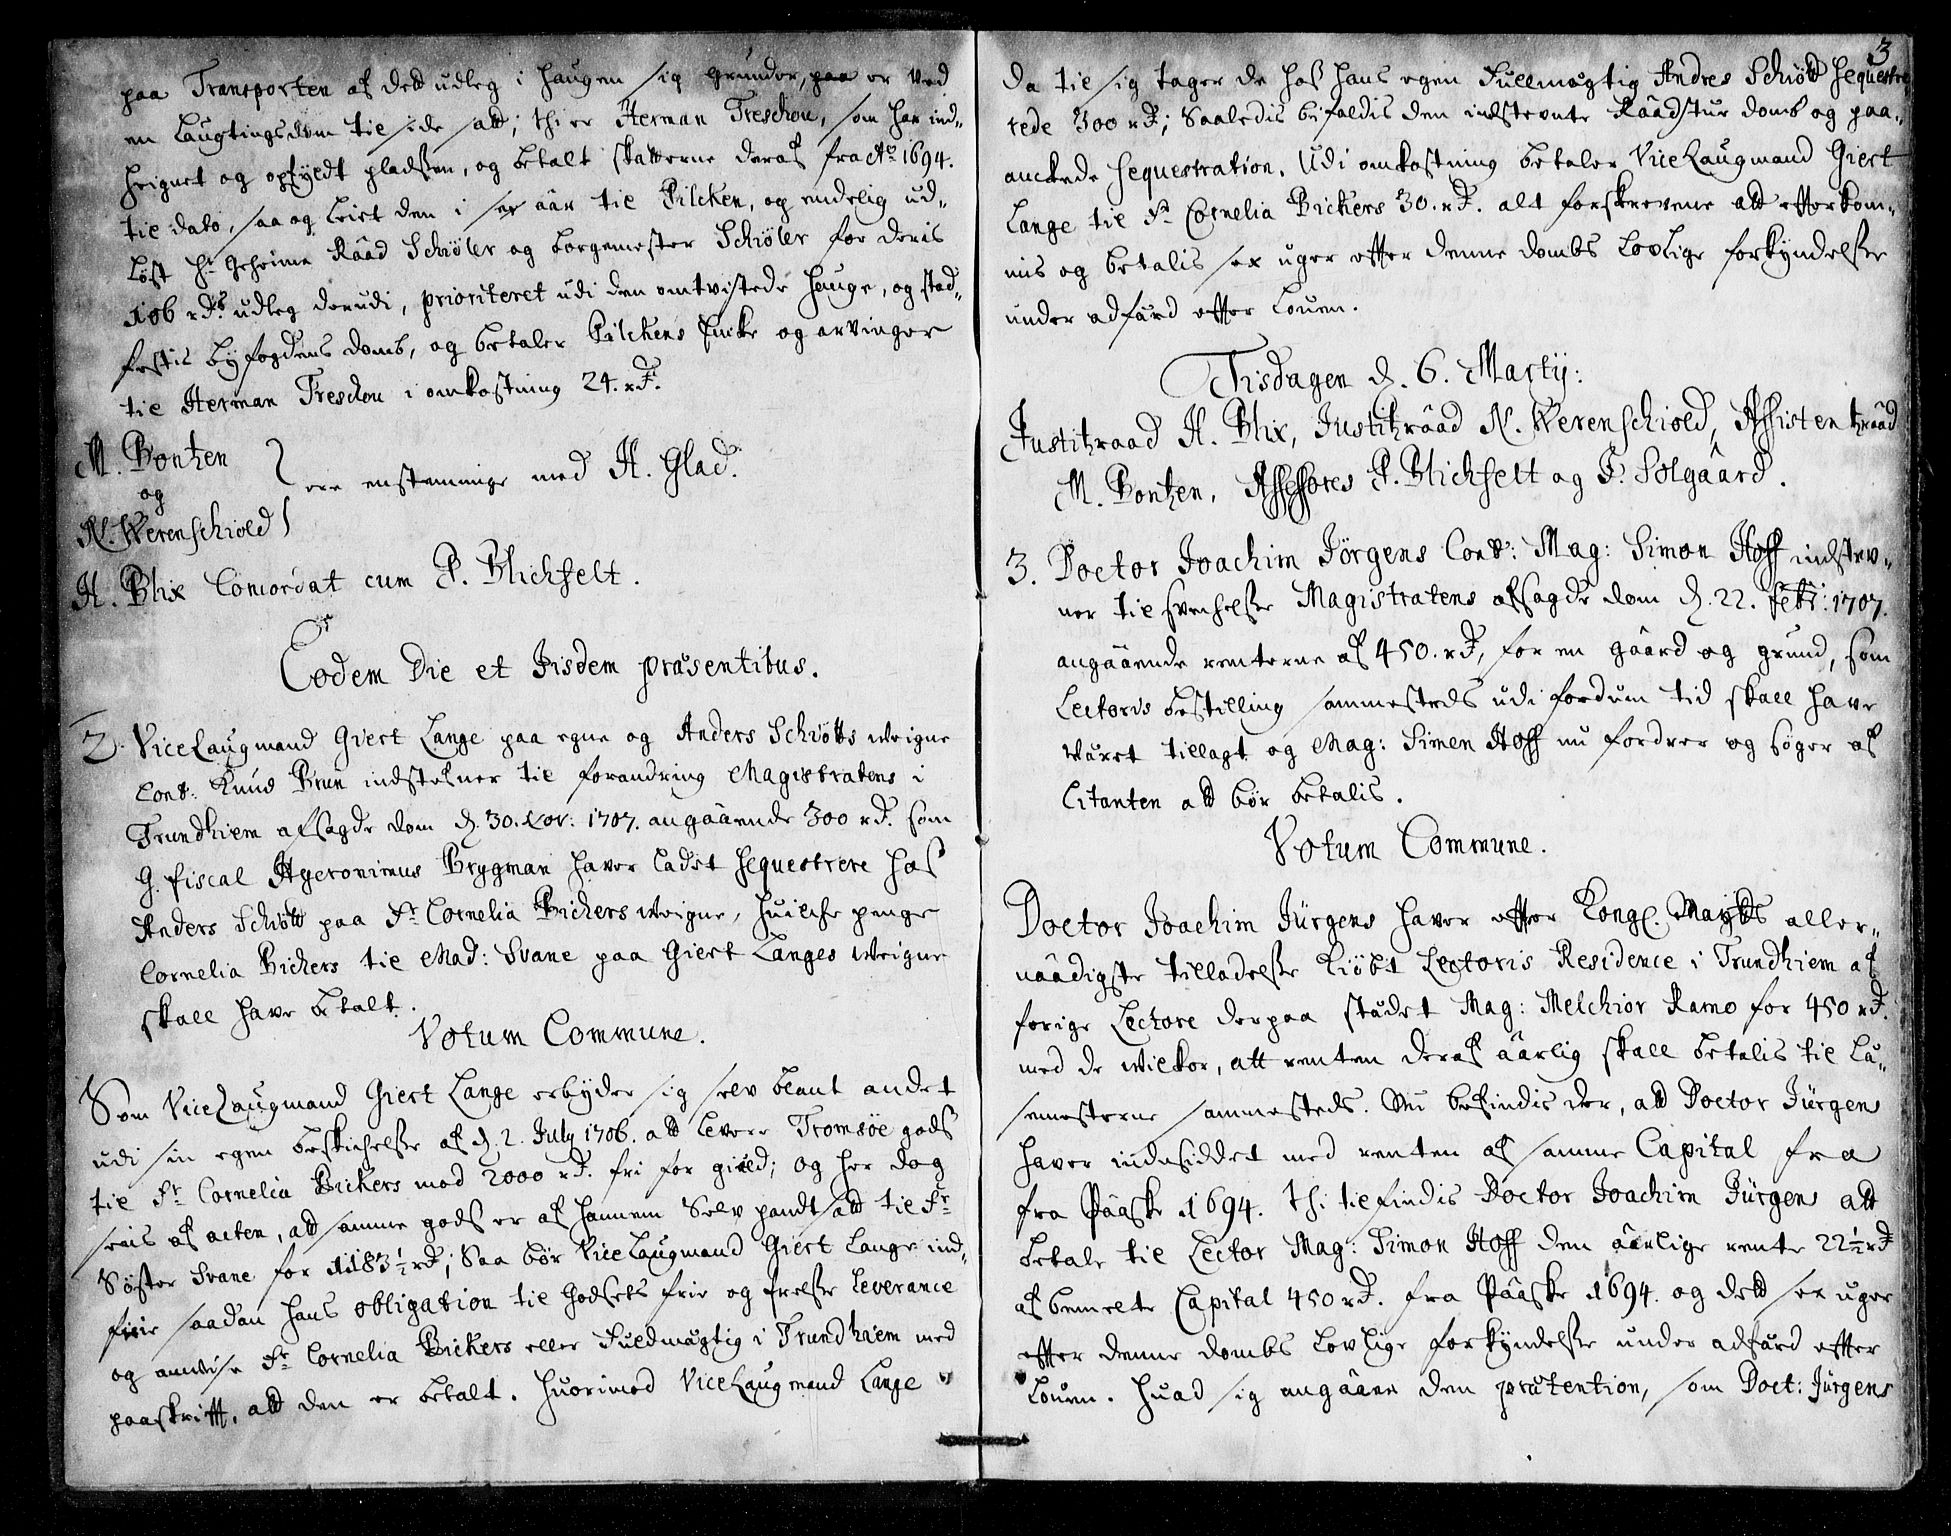 paa Transporten af dett udleg i haugen sig grunder, paa er ved
en laugtingsdom til side satt; thi er Herman Treschou, som har ind-
heignet og opfyldt pladssen, og betalt skatterne deraf fra Ao 1694.
til dato, saa og leiet den i sex aar til Pilcken, og endelig ud-
løst Hr Geheime Raad Schøler og borgemester Schøler for deris
106 rdrs udleg derudi, prioriteret udi den omtvistede hauge, og stad-
festis byfogdens domb, og betaler Pilckens Encke og arvinger
til Herman Treschou i omkostning 24. rd.
M. Bontzen
og
ere enstemmige med H. Glad.
N. Werenschiold
H. Blix Concordat cum P. Blichfelt.
Eodem Die et Iisdem præsentibus.
2. ViceLaugmand Giert Lange paa egne og Anders Schiøtts weigne
Cont: Knud Brun indstefner til forandring Magistratens i
Trundhiem afsagde dom d. 30. Nov: 1707. angaaende 300 rd. som
G. fiscal Hyeronimus Brygman haver ladet sequestrere hos
Anders Schiøtt paa Fr Cornelia Bickers weigne, huilche penge
Cornelia Bickers til Mad: Svane paa Giert Langes weigne
skall have betalt.
Votum Commune.
Som ViceLaugmand Giert Lange erbyder sig selv blant andet
udi sin egen beskichelsse af d. 2. July 1706. att levere Tromsøe gods
til Fr Cornelia Bickers mod 2000 rd. fri for gield; og her dog
seeis af acten, att samme gods er af hannem selv pandtsatt til Fr
Søster Svane for 1183½ rd; Saa bør ViceLaugmand Giert Lange ind-
frie saadan hans obligation til godsets frie og frelse Leverance
og anvise Fr Cornelia Bickers eller Fuldmægtig i Trundhiem med
paaskrifft, att den er betalt. Huorimod ViceLaugmand Lange
3
da til sig tager de hos hans egen Fullmægtig Andres Schiøtt seqvestre
rede 300 rd; Saaledis befaldis den indstevnte Raadstue domb og paa-
anckede seqvestration. Udi omkostning betaler ViceLaugmand Giert
Lange til Fr Cornelia Bickers 30. rd. alt forskrevene att efterkom-
mis og betalis sex uger efter denne dombs Lovlige forkyndelsse
under adfærd effter Louen.
Tisdagen d. 6. Martij:
Justitzraad H. Blix, Justitzraad N. Werenschiold, Assistentzraad
M. Bontzen, Assessores P. Blichfelt og F. Solgaard.
3. Doctor Joachim Jörgens Cont: Mag: Simon Hoff indstev-
ner til svechelsse Magistratens afsagde dom d. 22. Febr: 1707.
angaaende renterne af 450. rd, for en gaard og grund, som
Lectoris bestilling sammesteds udi fordum tid skall have
været tillagt og Mag: Simen Hoff nu fordrer og søger af
Citanten att bør betalis.
Votum Commune.
Doctor Joachim Jürgens haver effter Kongl. Mayts aller-
naadigste tilladelsse kiøbt Lectoris Residence i Trundhiem af
forige Lectore derpaa stædet Mag: Melchior Ramo for 450 rd.
med de wilkor, att renten deraf aarlig skall betalis til Læ-
semesterne sammesteds. Nu befindis der, att Doctor Jürgens
haver indesiddet med renten af samme Capital fra
fra Paaske 1694. thi tilfindis Doctor Joachim Jürgens att
betale til Lector Mag: Simon Hoff den aarlige rente 22½ rd
af bemelte Capital 450 rd. fra Paaske 1694. og dett sex uger
effter denne dombs Lovlige forkyndelsse under adfærd effter
Louen. Huad sig angaaer den prætention, som Doct: Jürgens